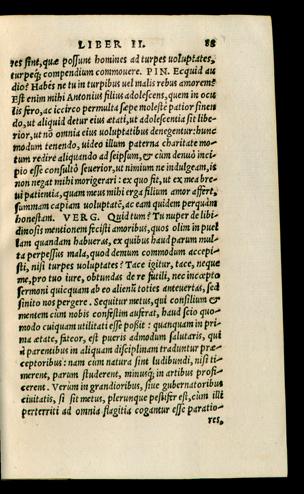 LIBER II. 88
res sint, quæ possunt homines ad turpes voluptates,
turpeq; compendium commouere. PIN. Ecquid au
dio? Habes ne tu in turpibus vel malis rebus amorem?
Est enim mihi Antonius filius adolescens, quem in ocu
lis fero, ac iccirco permulta sæpe molestè patior sinen
do, ut aliquid detur eius ætati, ut adolescentia sit libe-
rior, ut nō omnia eius voluptatibus denegentur: hunc
modum tenendo, uideo illum paterna charitate mo-
tum redire aliquando ad seipsum, & cùm denuò inci-
pio esse consultò seuerior, ut nimium ne indulgeam, is
non negat mihi morigerari: ex quo fit, ut ex mea bre-
ui patientia, quam meus mihi erga filium amor affert,
summam capiam voluptatē, ac eam quidem perquàm
honestam. VERG. Quid tum? Tu nuper de libi-
dinosis mentionem fecisti amoribus, quos olim in puel
lam quandam habueras, ex quibus haud parum mul-
ta perpessus mala, quod demum commodum accepi-
sti, nisi turpes voluptates? Tace igitur, tace, neque
me, pro tuo iure, obtundas de re futili, nec incœpto
sermoni quicquam ab eo alienū toties anteuertas, sed
sinito nos pergere. Sequitur metus, qui consilium &
mentem cùm nobis confestim auferat, haud scio quo-
modo cuiquam utilitati esse possit: quanquam in pri-
ma ætate, fateor, est pueris admodum salutaris, qui
à parentibus in aliquam disciplinam traduntur præ-
ceptoribus: nam cùm natura sint ludibundi, nisi ti-
merent, parum studerent, minusq; in artibus profi-
cerent. Verùm in grandioribus, siue gubernatoribus
ciuitatis, si sit metus, plerunque pestifer est, cùm illi
perterriti ad omnia flagitia cogantur esse paratio-
res,